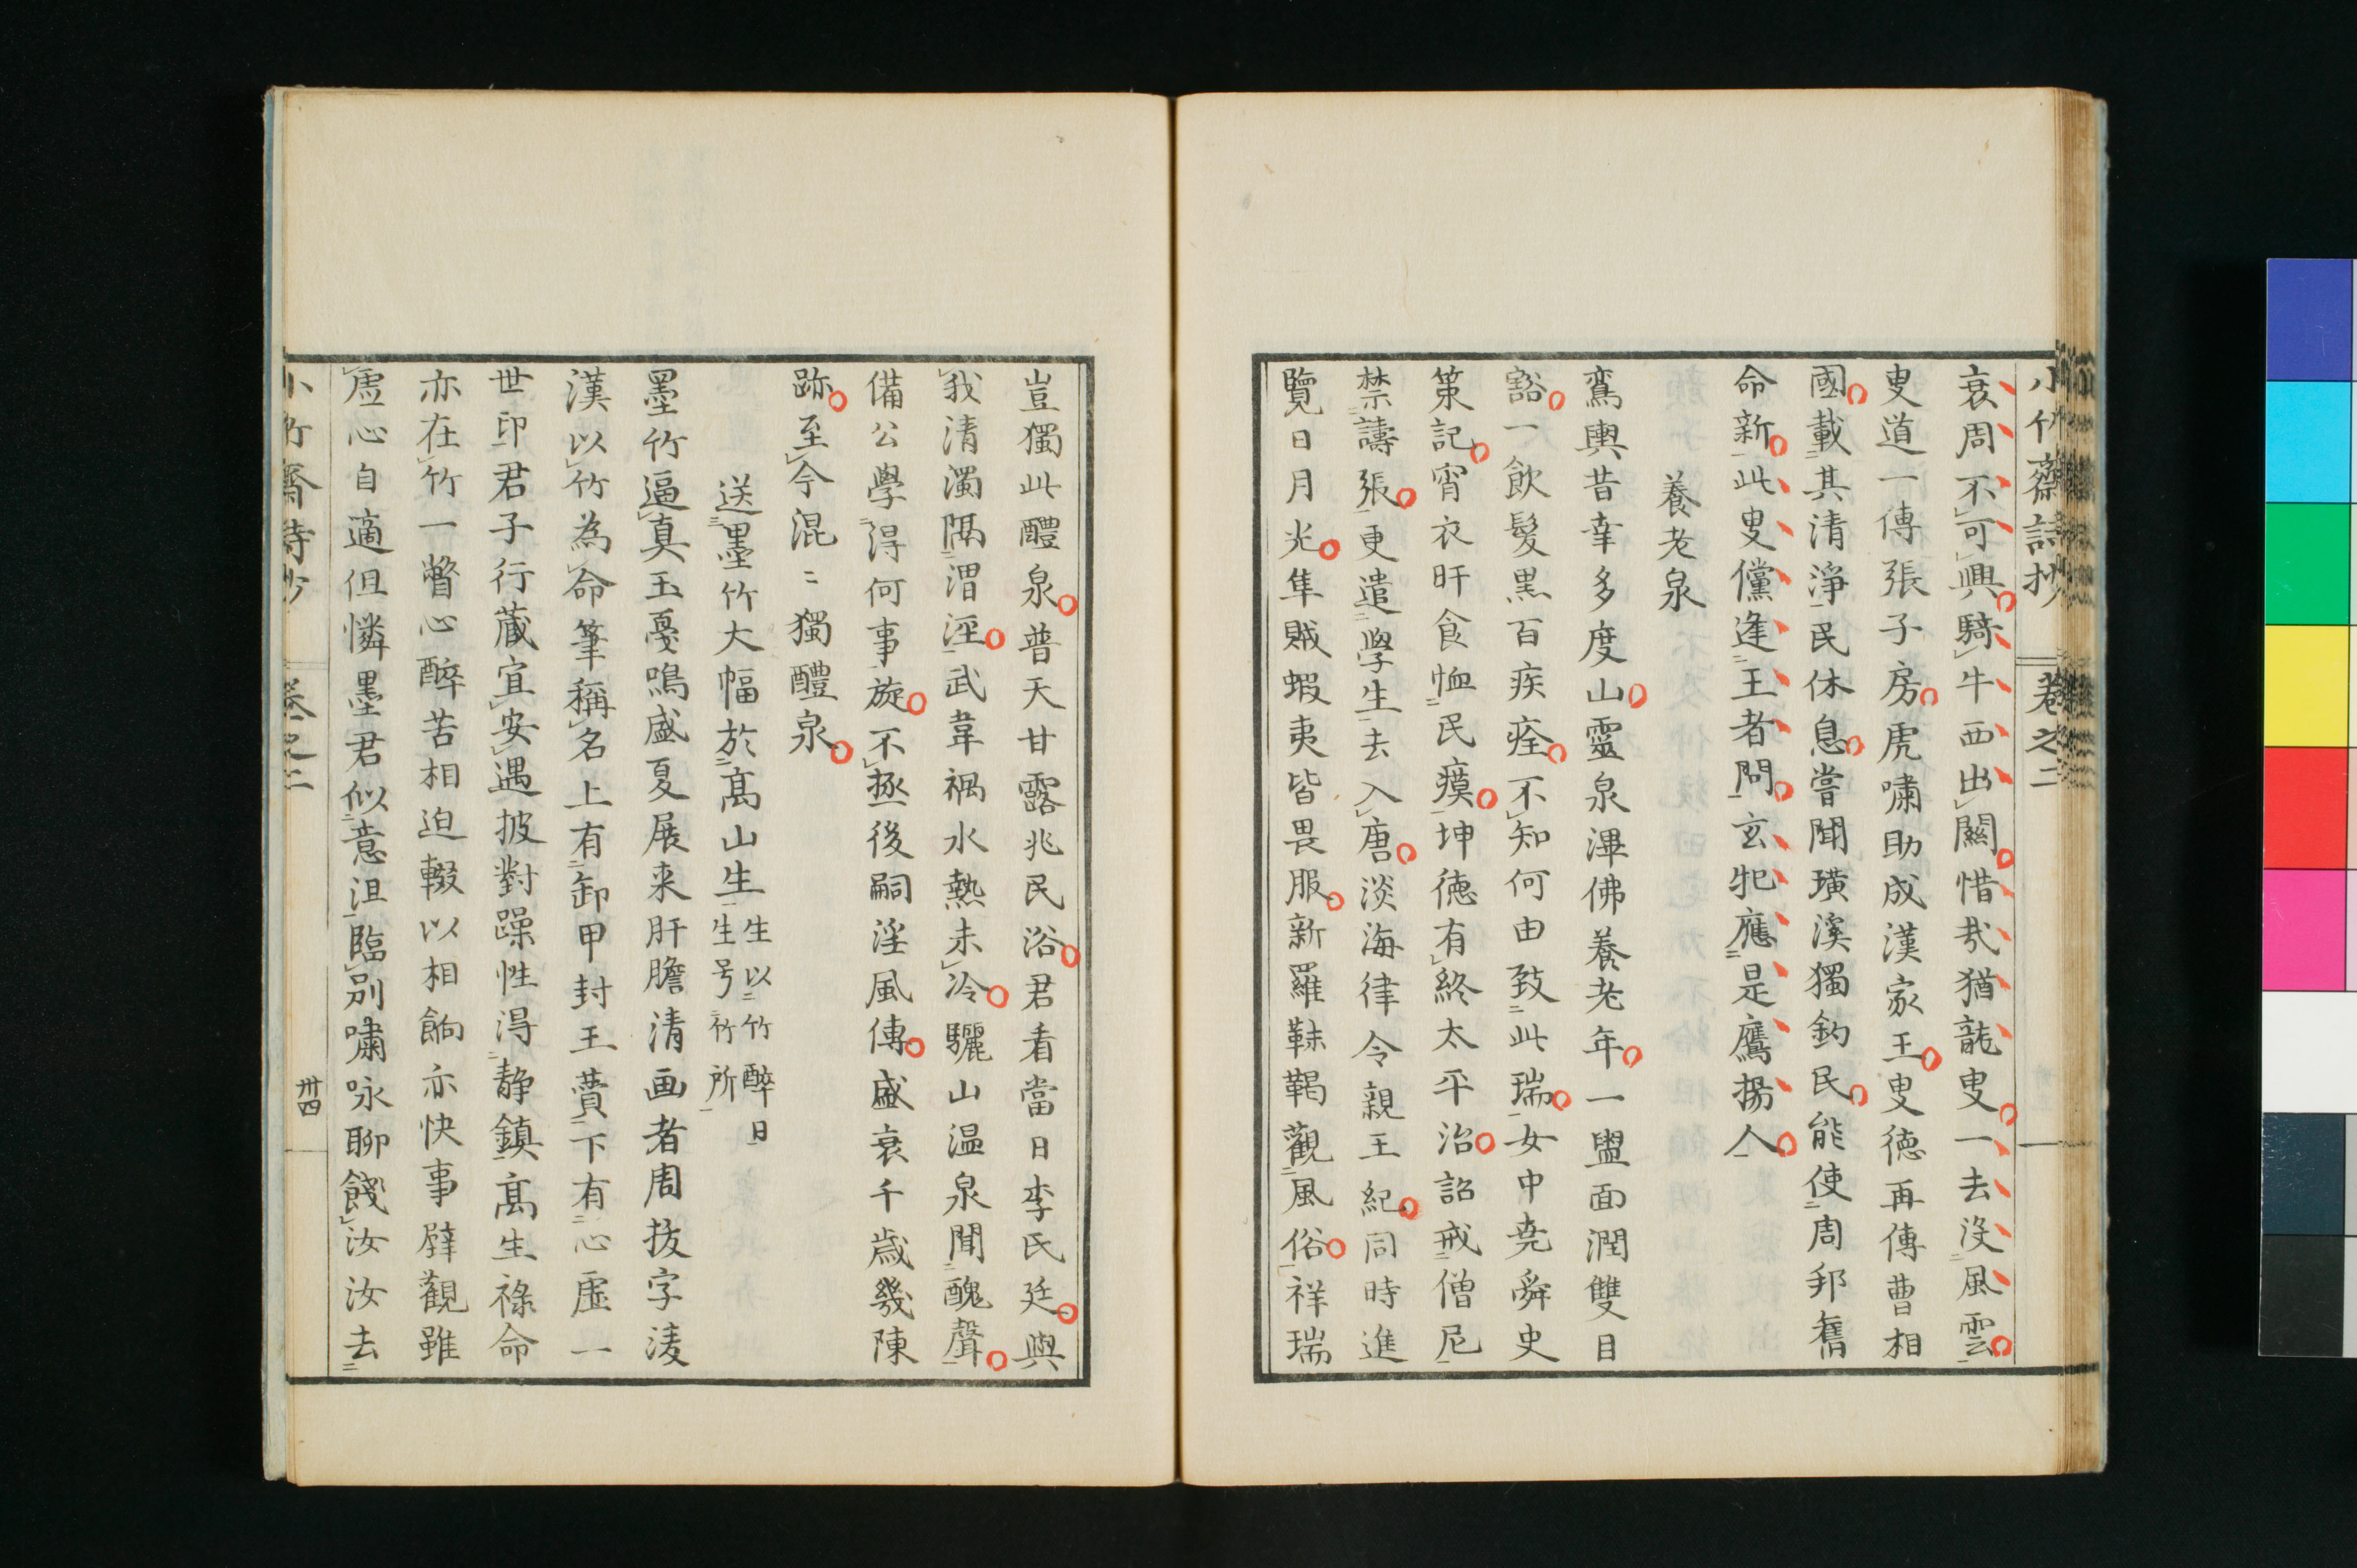 小竹齋詩抄 卷之二
衰周不可興騎牛西出關惜哉猶龍叟一去沒風雲
叟道一傳張子房虎嘯助成漢家王叟徳再傳曹相
國載其清淨民休息嘗聞璜溪獨釣民能使周邦舊
命新此叟儻逢王者問玄牝應是鷹揚人
養老泉
鸞輿昔幸多度山靈泉渾佛養老年一盥面潤雙目
豁一飲髮黑百疾痊不知何由致此瑞女中堯舜史
策記宵衣旰食恤民瘼坤徳有終太平治詔戒僧尼
禁譸張更遣學生去入唐淡海律令親王紀同時進
覽日月光隼賊蝦夷皆畏服新羅靺鞨觀風俗祥瑞
豈獨此醴泉普天甘露兆民浴君看當日李氏廷與
我清濁隅渭涇武韋禍水熱未冷驪山温泉聞醜聲
備公學得何事旋不拯後嗣淫風傳盛衰千歳幾陳
跡至今混〻獨醴泉
送墨竹大幅於髙山生生以竹醉日
生号竹所
墨竹逼真玉戞鳴盛夏展来肝膽清画者周抜字淩
漢以竹為命筆稱名上有卸甲封王蕡下有心虚一
世印君子行蔵宜安遇披對躁性淂静鎮髙生祿命
亦在竹一瞥心醉苦相迫輟以相餉亦快事檘觀雖
虚心自適但憐墨君似意沮臨別嘯咏聊餞汝汝去
小竹齋詩抄 卷之二 卅四